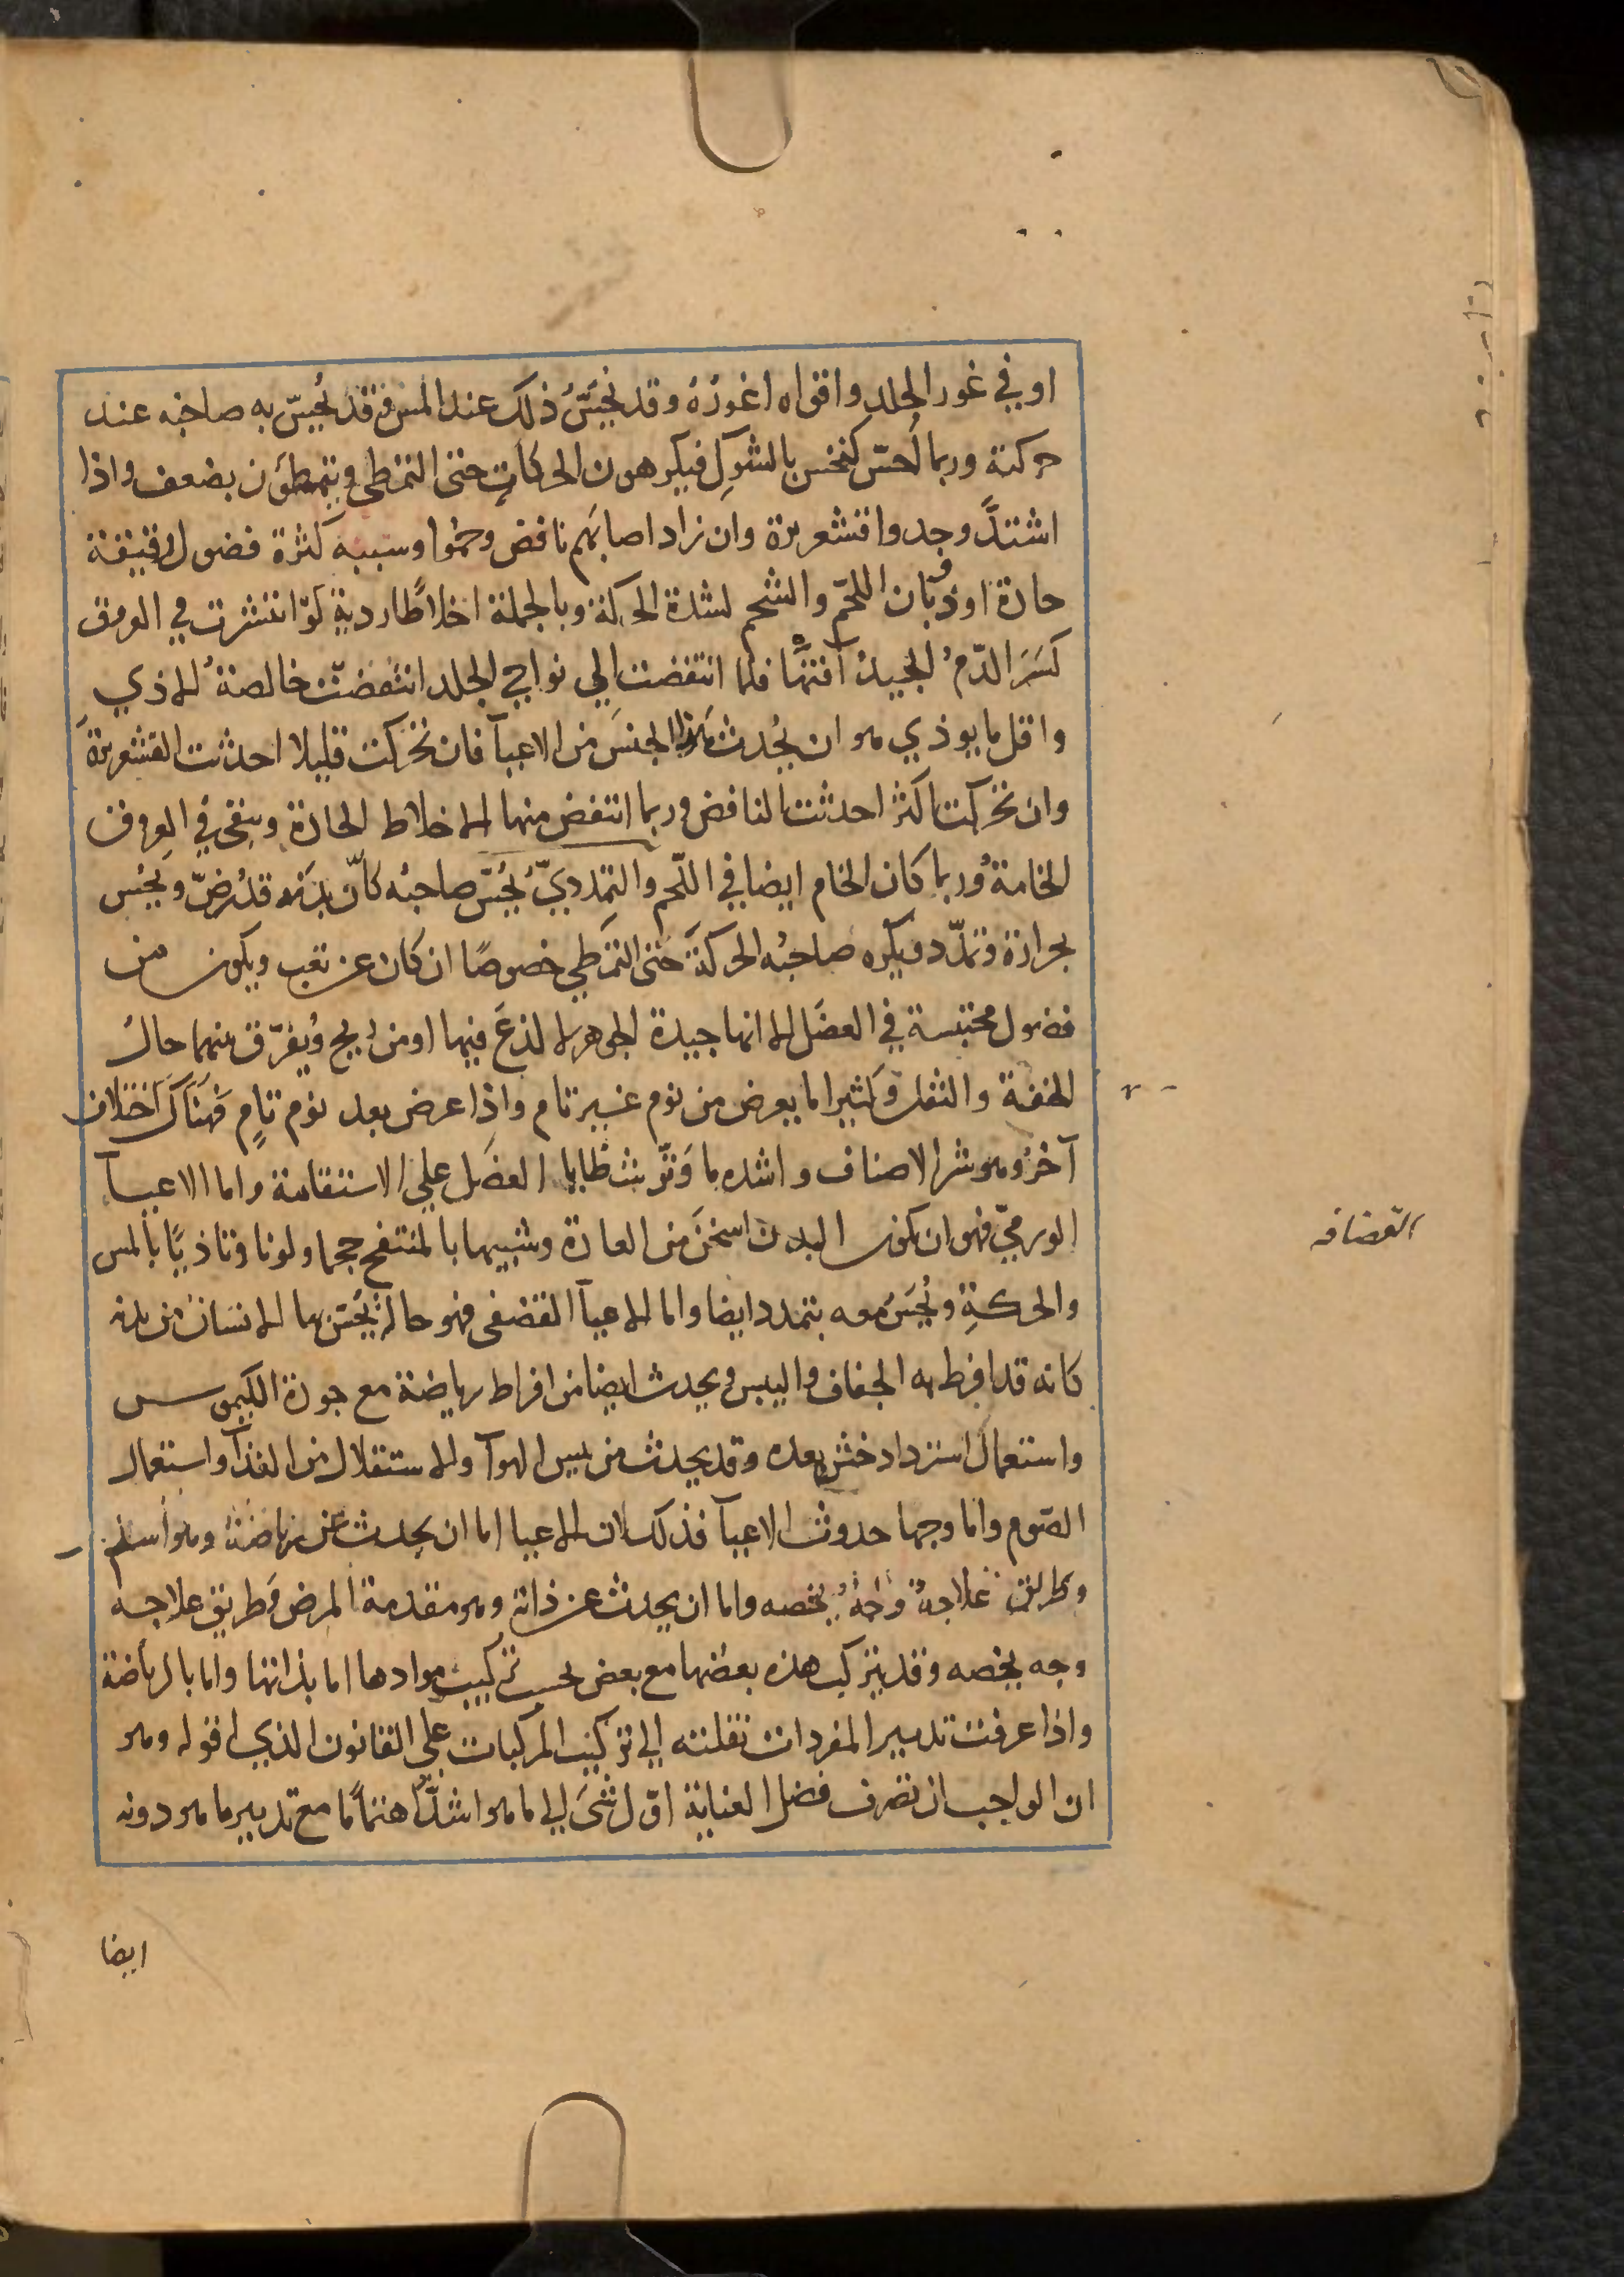 او في غور الجلد واقواه اغورُهُ وقد يُحَسُّ ذلك عند المس وقد يُحِسّ به صاحبه عند
حركته وربما احسّ كنخس بالشوك فيكرهون الحركات حتى التمطي ويتمطؤن بضعف واذا
اشتدّ وجدوا قشعريرة وان زاد اصابهم نافض وحموا وسببه كثرة فضول رقيقة
حادة او ذوبان اللحم والشحم لشدة الحركة وبالجملة اخلاطا ردية لو انتشرت في العروق
كَسَرَ الدّمُ الجيدُ آفتها فلما انتفضت الي نواحي الجلد انتفضت خالصةُ الاذي
واقل ما يوذي هو ان يُحدث هذا الجنسَ من الاعيآ فان تحركت قليلا احدثت القشعريرةَ
وان تحركت اكثر احدثت النافض وربما انتفض منها الاخلاط الحادة وبقي في العروق
الخامة وربما كان الخام ايضا في اللحم والتمدديّ يُحسّ صاحبُه كانّ بدَنه قد رُضّ ويُحس
بحرارة وتمدّد ويكره صاحبُه الحركةَ حتى التمطي خصوصًا ان كان عن تعب ويكون من
فضول محتبسة في العضَل الا انها جيدة الجوهر لا لذعَ فيها او من ريح ويُفرّق بينهما حالُ
الخفة والثقل وكثيرا ما يعرض من نوم غير تام واذا عرض بعد نوم تامٍ فهناك اختلاف
آخرُ وهو شر الاصناف واشده ما وَتّرت شظايا العضَل علي الاستقامة واما الاعيآ
الورميّ فهو ان يكون البدن اسخَنَ من العادة وشبيها بالمنتفخ حجما ولونا وتاذيًا بالمس
والحركةِ ويُحَسّ معه بتمدد ايضا واما الاعيآ القضفي فهو حالة يُحسّ بها الانسان من بدنه
كانه قد افرط به الجفاف واليبس ويحدث ايضا من افراط رياضة مع جودة الكيموس
واستعمال استرداد خشن بعده وقد يحدث من يبس الهوآ والاستقلال من الغذآ واستعمال
الصوم واما وجها حدوث الاعيآ فذلك لان الاعيا اما ان يحدث عن رياضة وهو اسلم
وطريق علاجه وجهٌ يخصه واما ان يحدث عن ذاته وهو مقدمة المرض وطريق علاجه
وجه يخصه وقد يتركب هذه بعضها مع بعض بحسب تركيب موادها اما بذاتها واما بالرياضة
واذا عرفت تدبير المفردات نقلته الي تركيب المركبات على القانون الذي اقوله وهو
ان الواجب ان تصرف فضل العناية اوّل شئ الي ما هو اشدّ اهتماما مع تدبير ما هو دونه
القضافه
ايضا